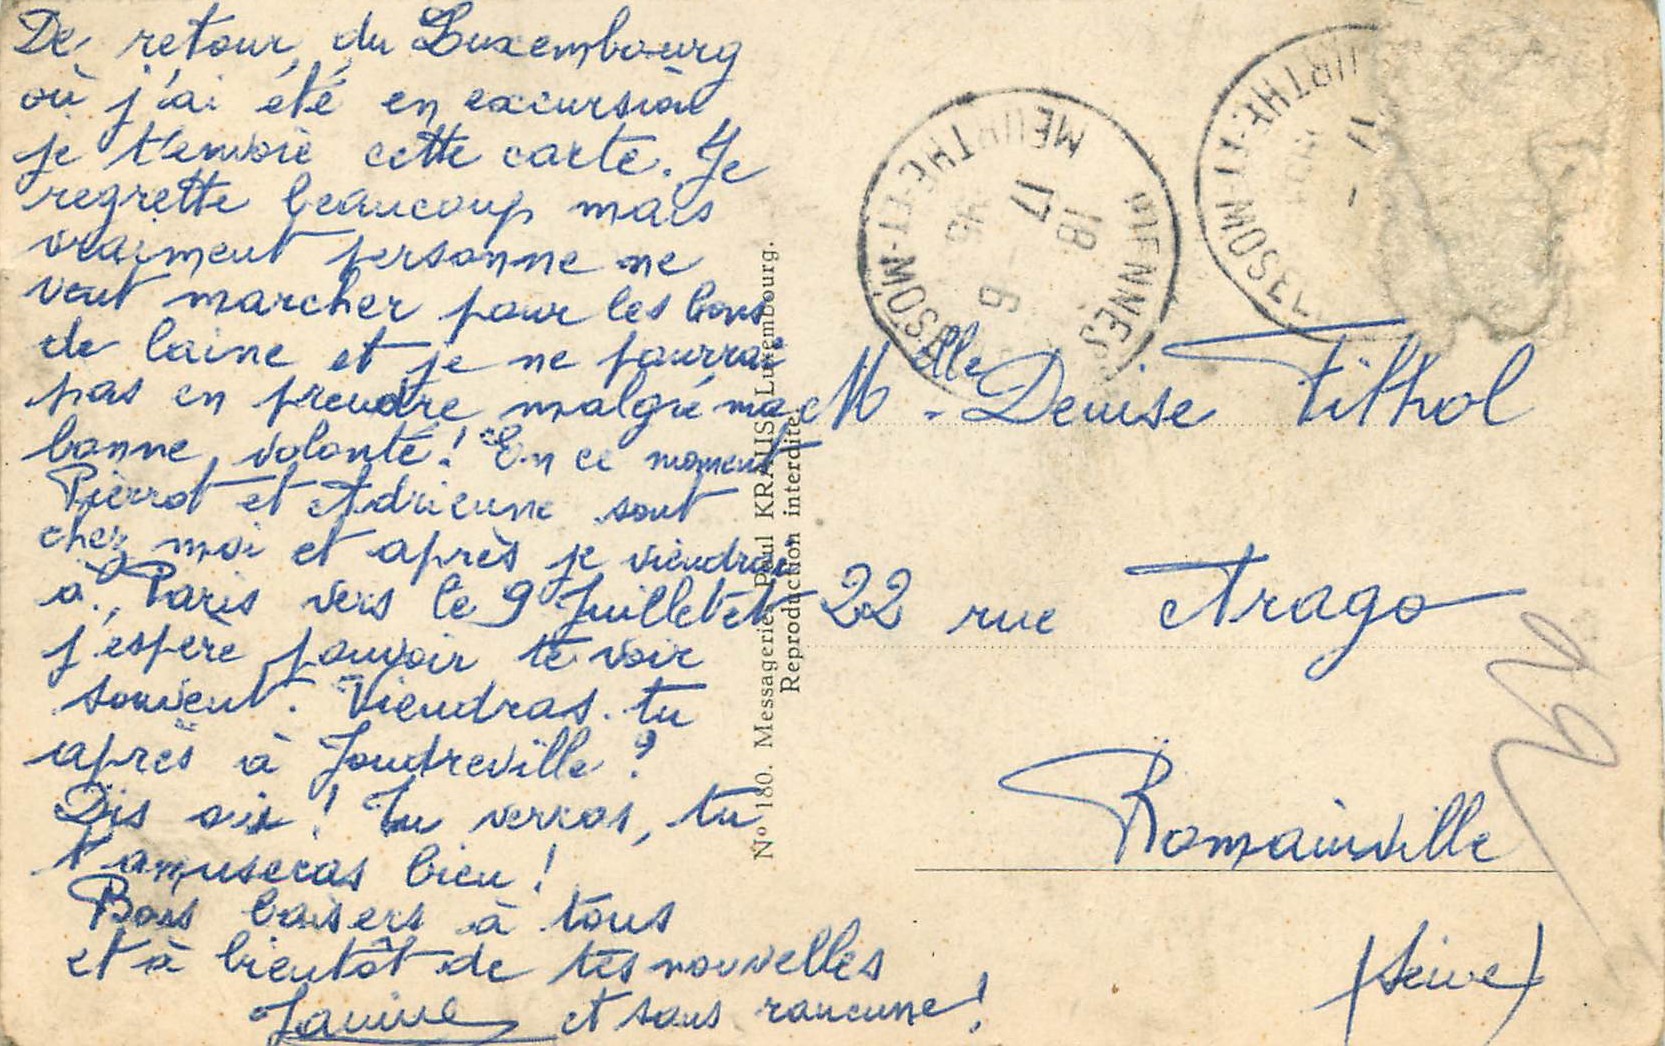 De retour du Luxembourg
où j'ai été en excursion
je t'envoie cette carte. Je
regrette beaucoup mais
vraiment personne ne
veut marcher pour les bons
de laine et je ne pourrai
pas en prendre malgré ma
bonne volonté! En ce moment
Pierrot et Adrienne sont
chez moi et après je viendrai
à Paris vers le 9 Juillet et
j'espère pouvoir te voir
souvent. Viendras-tu
après à Joudreville?
Dis oui! Tu verras, tu
t'amuseras bien!
Bons baisers à tous
et à bientôt de tes nouvelles
Janine et sans rancune!
No 180. Messageries Paul KRAUS Luxembourg.
Reproduction interdite.
MEURTHE-ET-MOSELLE
17
18
9
URTHE-ET-MOSEL
17
Mlle Denise Filhol
22 rue Arago
Romainville
(Seine)